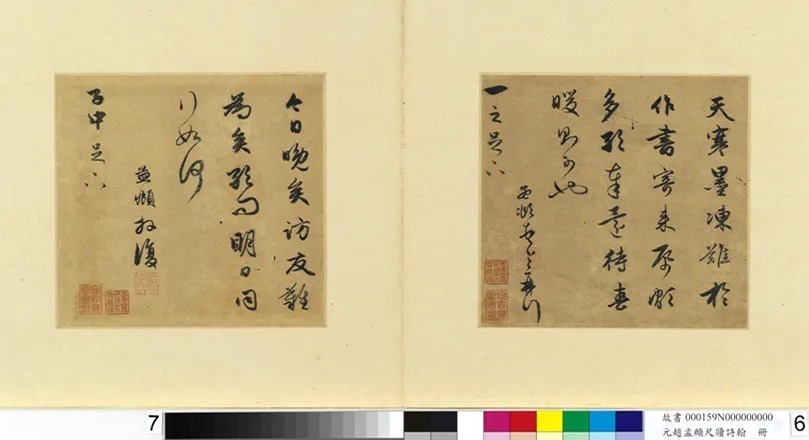 天寒墨凍難於
作書寄來
多敢奉還待春
暖則可也
孟頫
一之足下
今日晚矣訪友難
為矣敢問明日同
行如何
孟頫拜復
子中足下
7
故書 000159N000000000
元趙孟頫尺牘詩翰 冊
6